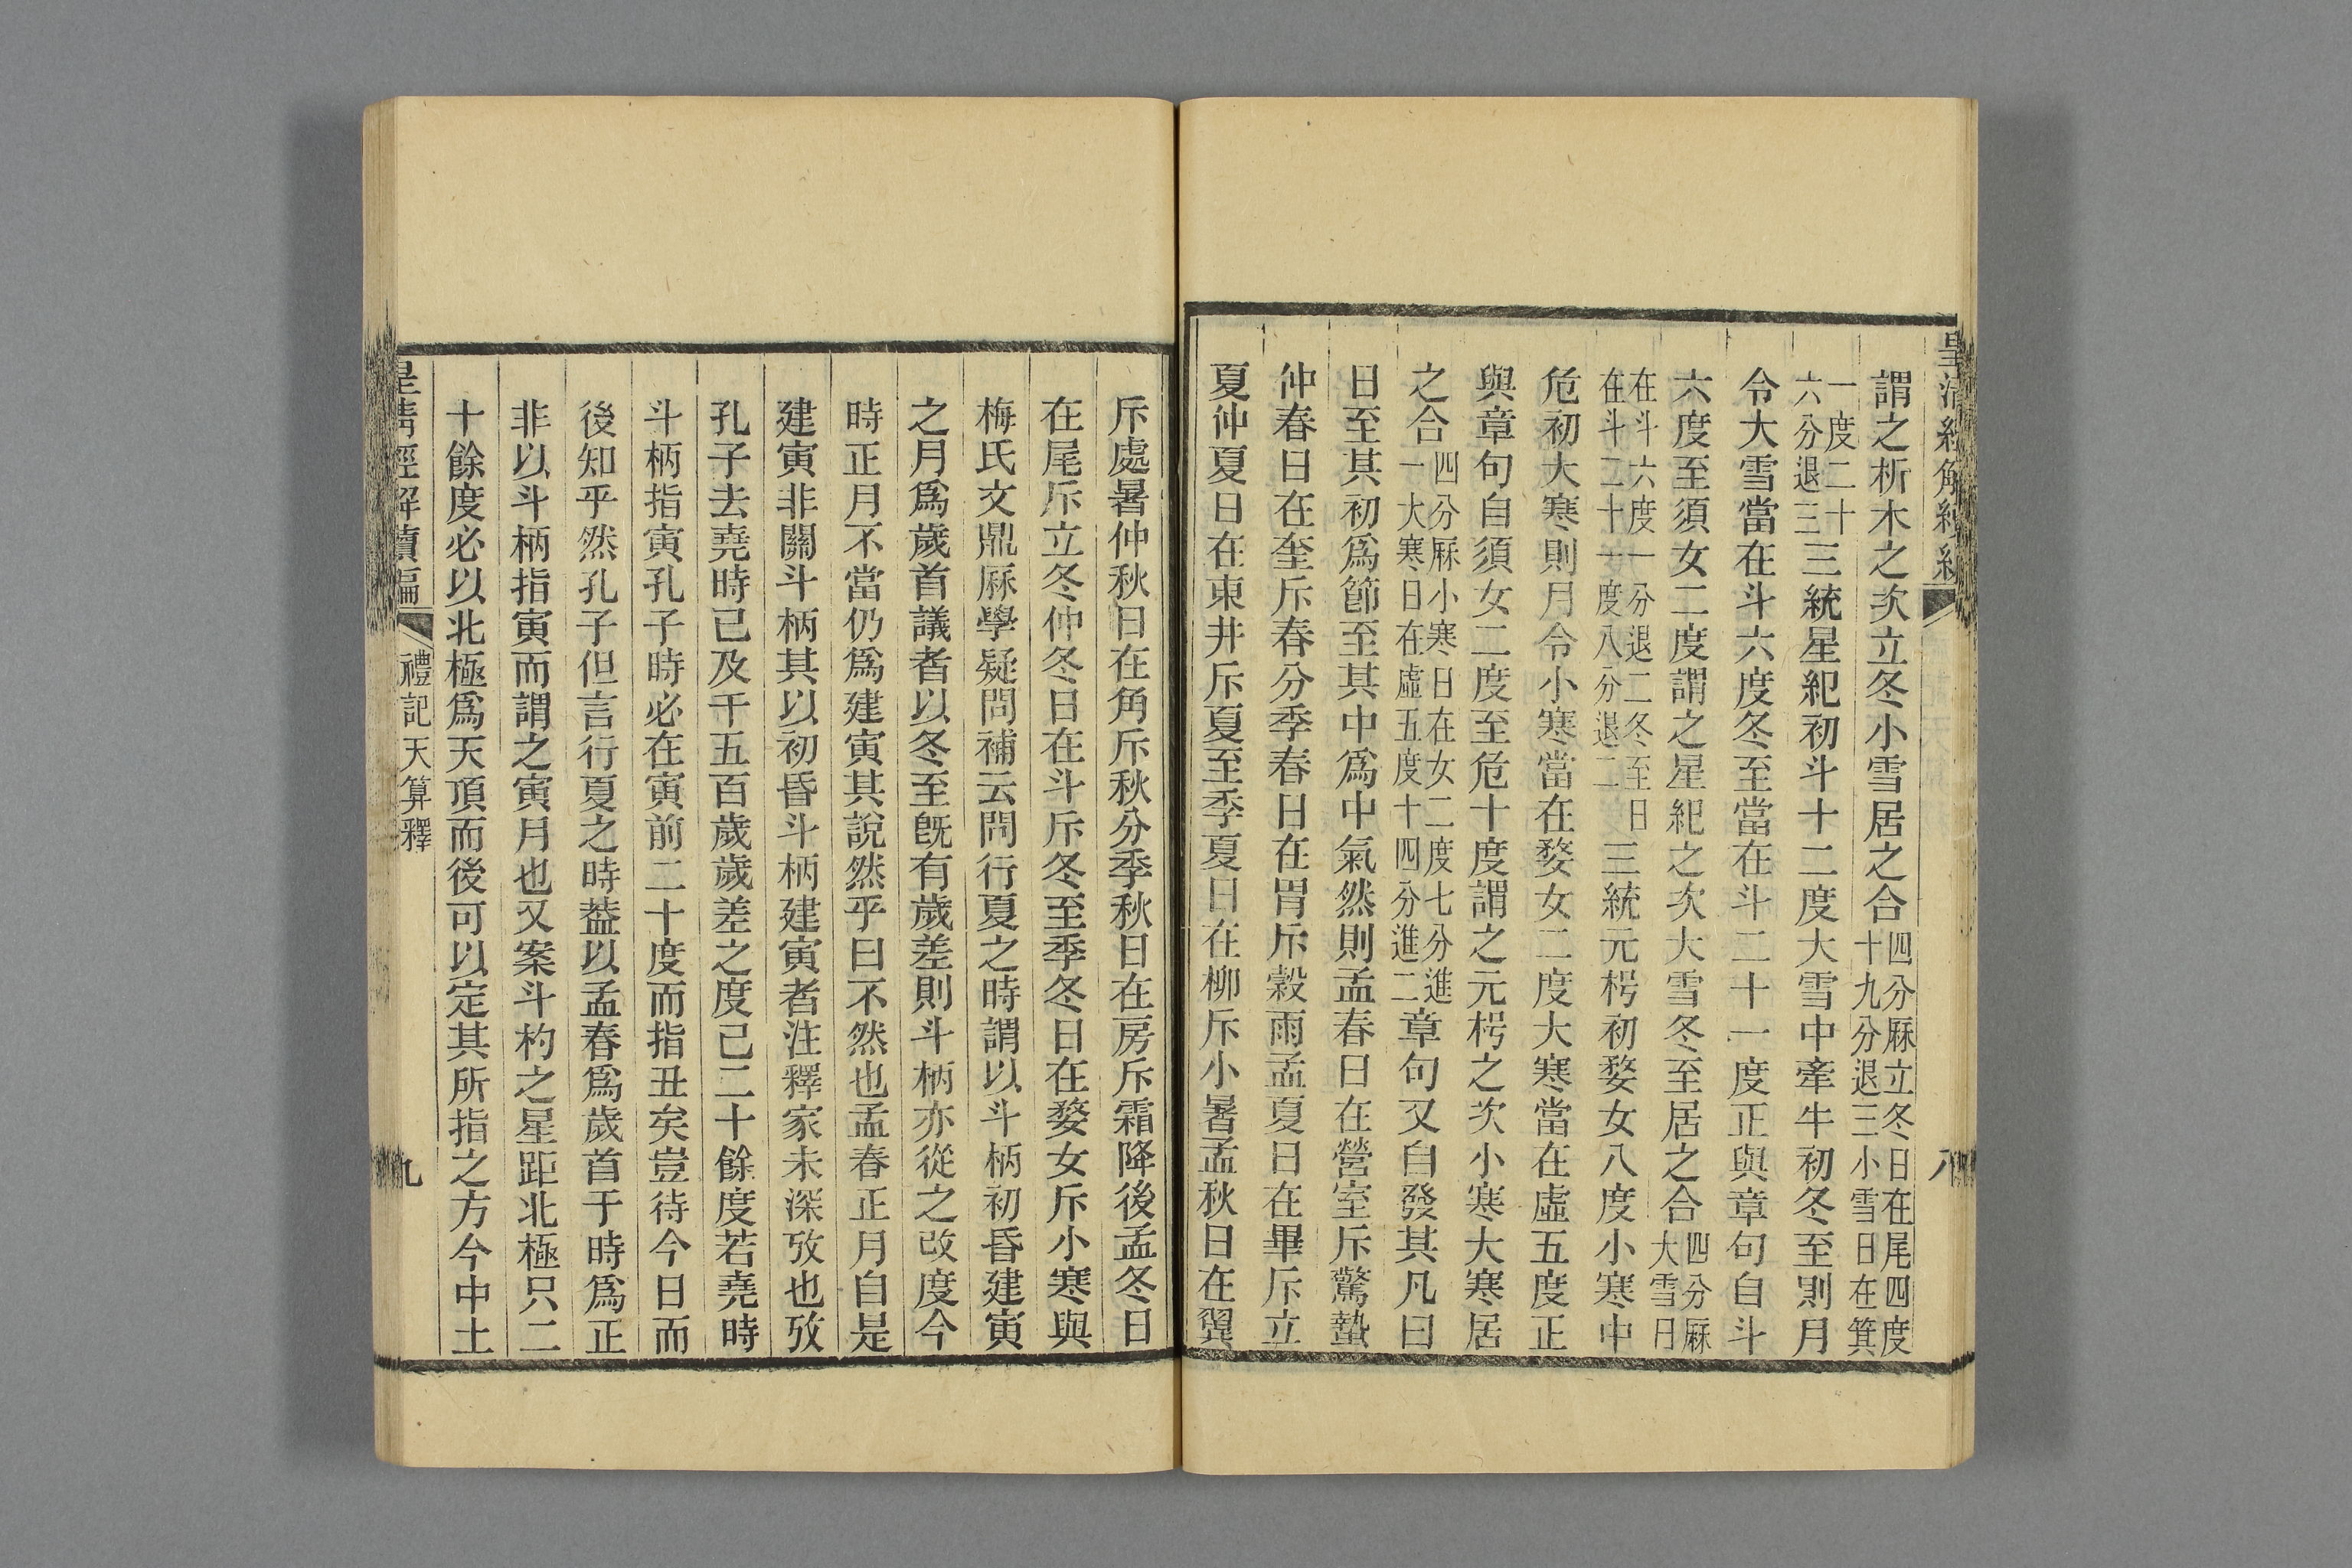 皇清經解續編
八
謂之析木之次立冬小雪居之合四分厤立冬日在尾四度十九分退三小雪日在箕
一度二十六分退三三統星紀初斗十二度大雪中牽牛初冬至則月
令大雪當在斗六度冬至當在斗二十一度正與章句自斗
六度至須女二度謂之星紀之次大雪冬至居之合四分厤大雪日
在斗六度一分退二冬至日在斗二十一度八分退二三統元枵初婺女八度小寒中
危初大寒則月令小寒當在婺女二度大寒當在虛五度正
與章句自須女二度至危十度謂之元枵之次小寒大寒居
之合四分厤小寒日在女二度七分進一大寒日在虛五度十四分進二章句又自發其凡曰
日至其初爲節至其中爲中氣然則孟春日在營室斥驚蟄
仲春日在奎斥春分季春日在胃斥穀雨孟夏日在畢斥立
夏仲夏日在東井斥夏至季夏日在柳斥小暑孟秋日在翼
斥處暑仲秋日在角斥秋分季秋日在房斥霜降後孟冬日
在尾斥立冬仲冬日在斗斥冬至季冬日在婺女斥小寒與
梅氏文鼎厤學疑問補云問行夏之時謂以斗柄初昏建寅
之月爲歲首議者以冬至旣有歲差則斗柄亦從之改度今
時正月不當仍爲建寅其說然乎曰不然也孟春正月自是
建寅非關斗柄其以初昏斗柄建寅者注釋家未深攷也攷
孔子去堯時已及千五百歲歲差之度已二十餘度若堯時
斗柄指寅孔子時必在寅前二十度而指丑矣豈待今日而
後知乎然孔子但言行夏之時葢以孟春爲歲首于時爲正
非以斗柄指寅而謂之寅月也又案斗杓之星距北極只二
十餘度必以北極爲天頂而後可以定其所指之方今中土
皇清經解續編
禮記天算釋
九